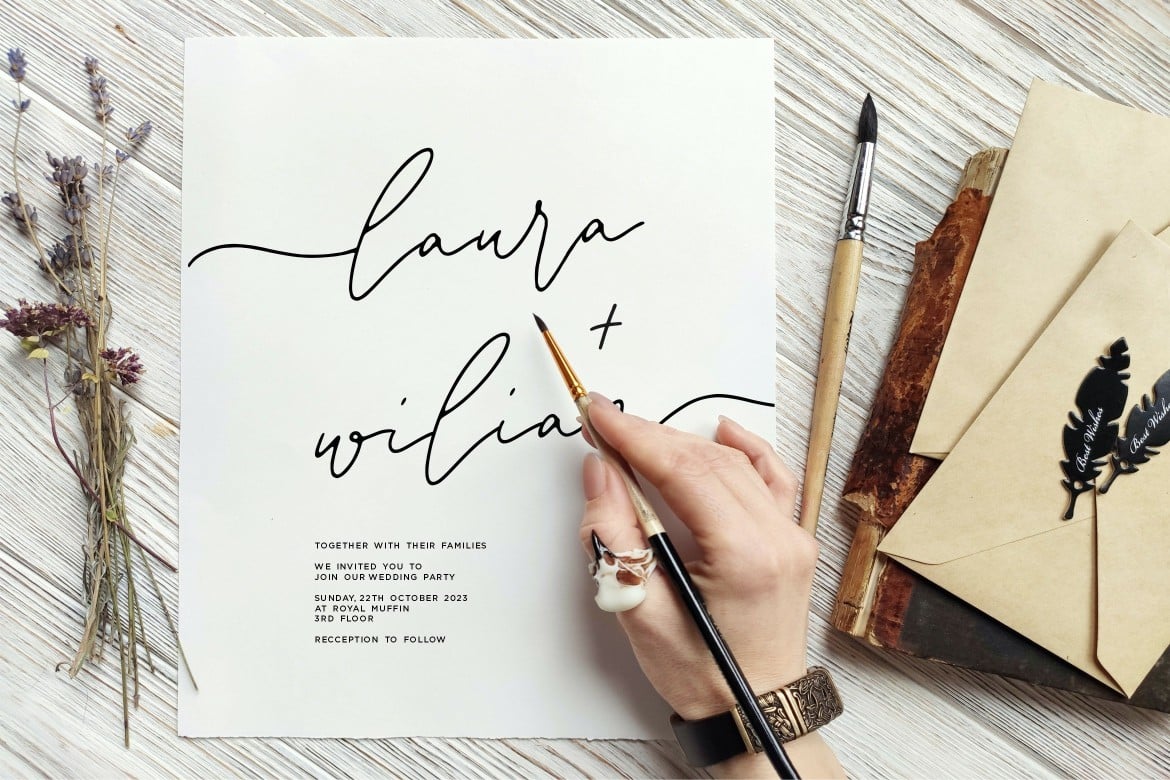 laura
+
wilia
TOGETHER WITH THEIR FAMILIES
WE INVITED YOU TO
JOIN OUR WEDDING PARTY
SUNDAY, 22TH OCTOBER 2023
AT ROYAL MUFFIN
3RD FLOOR
RECCEPTION TO FOLLOW
Best Wishes
Best Wish